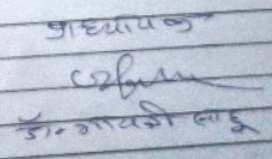 प्राध्यापक
डॉ. गायत्री लाडू